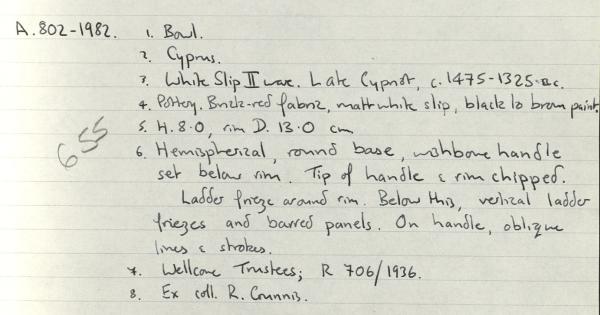 A.802-1982. 1. Bowl.
2. Cyprus.
3. White Slip II ware. Late Cypriot, c. 1475-1325 B.C.
4. Pottery. Brick-red fabric, matt white slip, black to brown paint.
5. H. 8.0, rim D. 13.0 cm
6. Hemispherical, round base, wishbone handle
set below rim. Tip of handle & rim chipped.
Ladder frieze around rim. Below this, vertical ladder
friezes and barred panels. On handle, oblique
lines & strokes.
7. Wellcome Trustees; R 706/1936.
8. Ex coll. R. Gunnis.
655